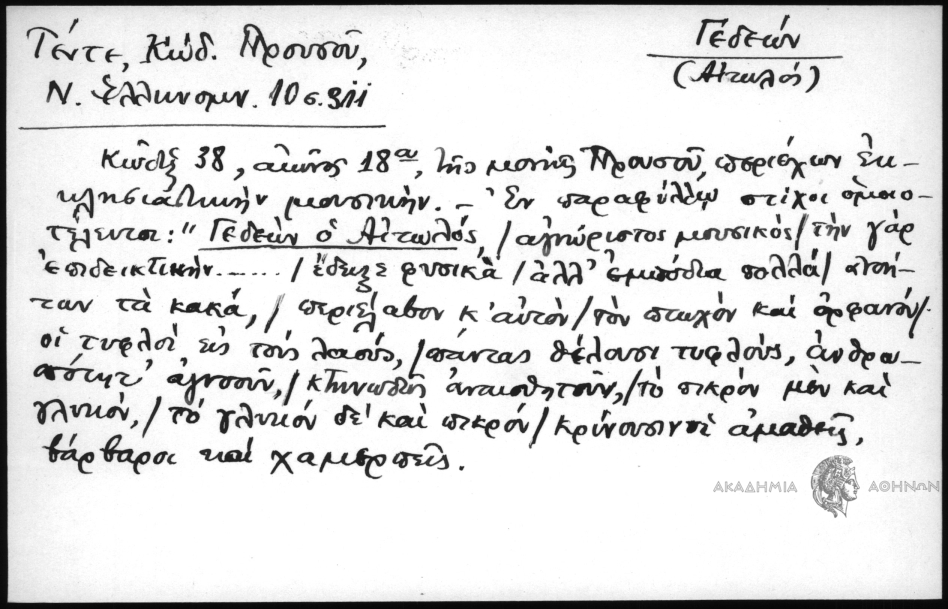 Τέντε, Κώδ. Προυσοῦ,
Ν. Ἑλληνομν. 10 σ. 311
Γεδεών
(Αἰτωλός)
Κῶδιξ 38, αἰῶνος 18ου, τῆς μονῆς Προυσοῦ, περιέχων ἐκ-
κλησιαστικὴν μουσικήν. – Ἐν παραφύλλῳ στίχοι ὁμοιο-
τέλευτοι: "Γεδεὼν ὁ Αἰτωλός, / ἀγνώριστος μουσικὸς / τὴν γὰρ
ἐπιδεικτικήν....... / ἔδειξε φυσικὰ / ἀλλ' ἐμπόδια πολλά /
των τὰ κακά, / περιέλαβον κ' αὐτὸν / τὸν πτωχὸν καὶ ὀρφανόν /
οἱ τυφλοὶ εἰς τοὺς λαούς, / πάντας θέλουσι τυφλούς, ἀνθρω-
πότητ' ἀγνοοῦν, / κτηνωδῶς ἀναισθητοῦν, / τὸ πικρὸν μὲν καὶ
γλυκόν, / τὸ γλυκὸν δὲ καὶ πικρόν / κρίνουσιν οἱ ἀμαθεῖς,
βάρβαροι καὶ χαμερπεῖς.
ΑΚΑΔΗΜΙΑ ΑΘΗΝΩΝ